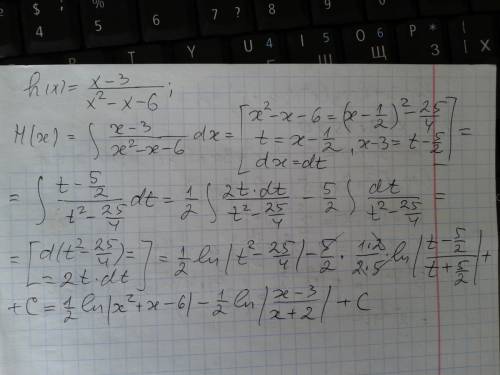 h(x) = \frac{x-3}{x^2-x-6};
H(x) = \int \frac{x-3}{x^2-x-6} dx = [x^2-x-6 = (x-\frac{1}{2})^2 - \frac{25}{4}; t = x-\frac{1}{2}, x-3 = t-\frac{5}{2}; dx = dt] =
= \int \frac{t-\frac{5}{2}}{t^2-\frac{25}{4}} dt = \frac{1}{2} \int \frac{2t \cdot dt}{t^2-\frac{25}{4}} - \frac{5}{2} \int \frac{dt}{t^2-\frac{25}{4}} =
= [d(t^2-\frac{25}{4}) = = 2t \cdot dt] = \frac{1}{2} ln|t^2-\frac{25}{4}| - \frac{5}{2} \cdot \frac{1 \cdot 2}{2 \cdot 5} ln|\frac{t-\frac{5}{2}}{t+\frac{5}{2}}| +
+ C = \frac{1}{2} ln|x^2+x-6| - \frac{1}{2} ln|\frac{x-3}{x+2}| + C
$ ; % : ? *
4 5 6 7 8 3
R T Y U I O P
4 5 6
Г Ш Щ З Х